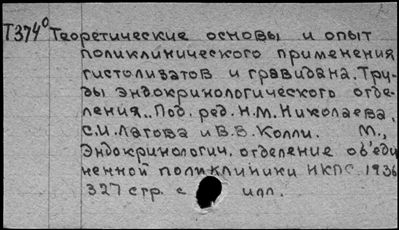 Т374⁰ Теоретические основы и опыт
поликлинического применения
гистолизатов и гравидана. Тру-
ды эндокринологического отде-
ления.. Под. ред. Н.М. Николаева,
С.И. Лагова и В.В. Колли. М.,
Эндокринологич. отделение об'еди
ненной поликлиники НКПС 1936
327 стр. с илл.